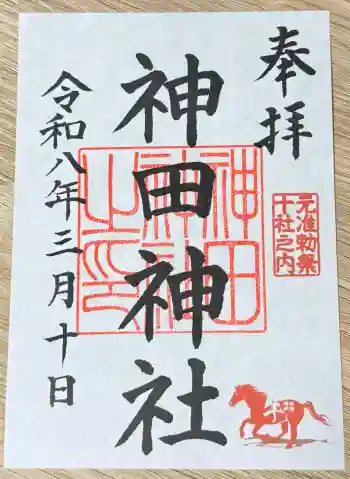 奉拝
元准勅祭
十社之内
神田神社
神田
神社
之印
令和八年三月十日
神